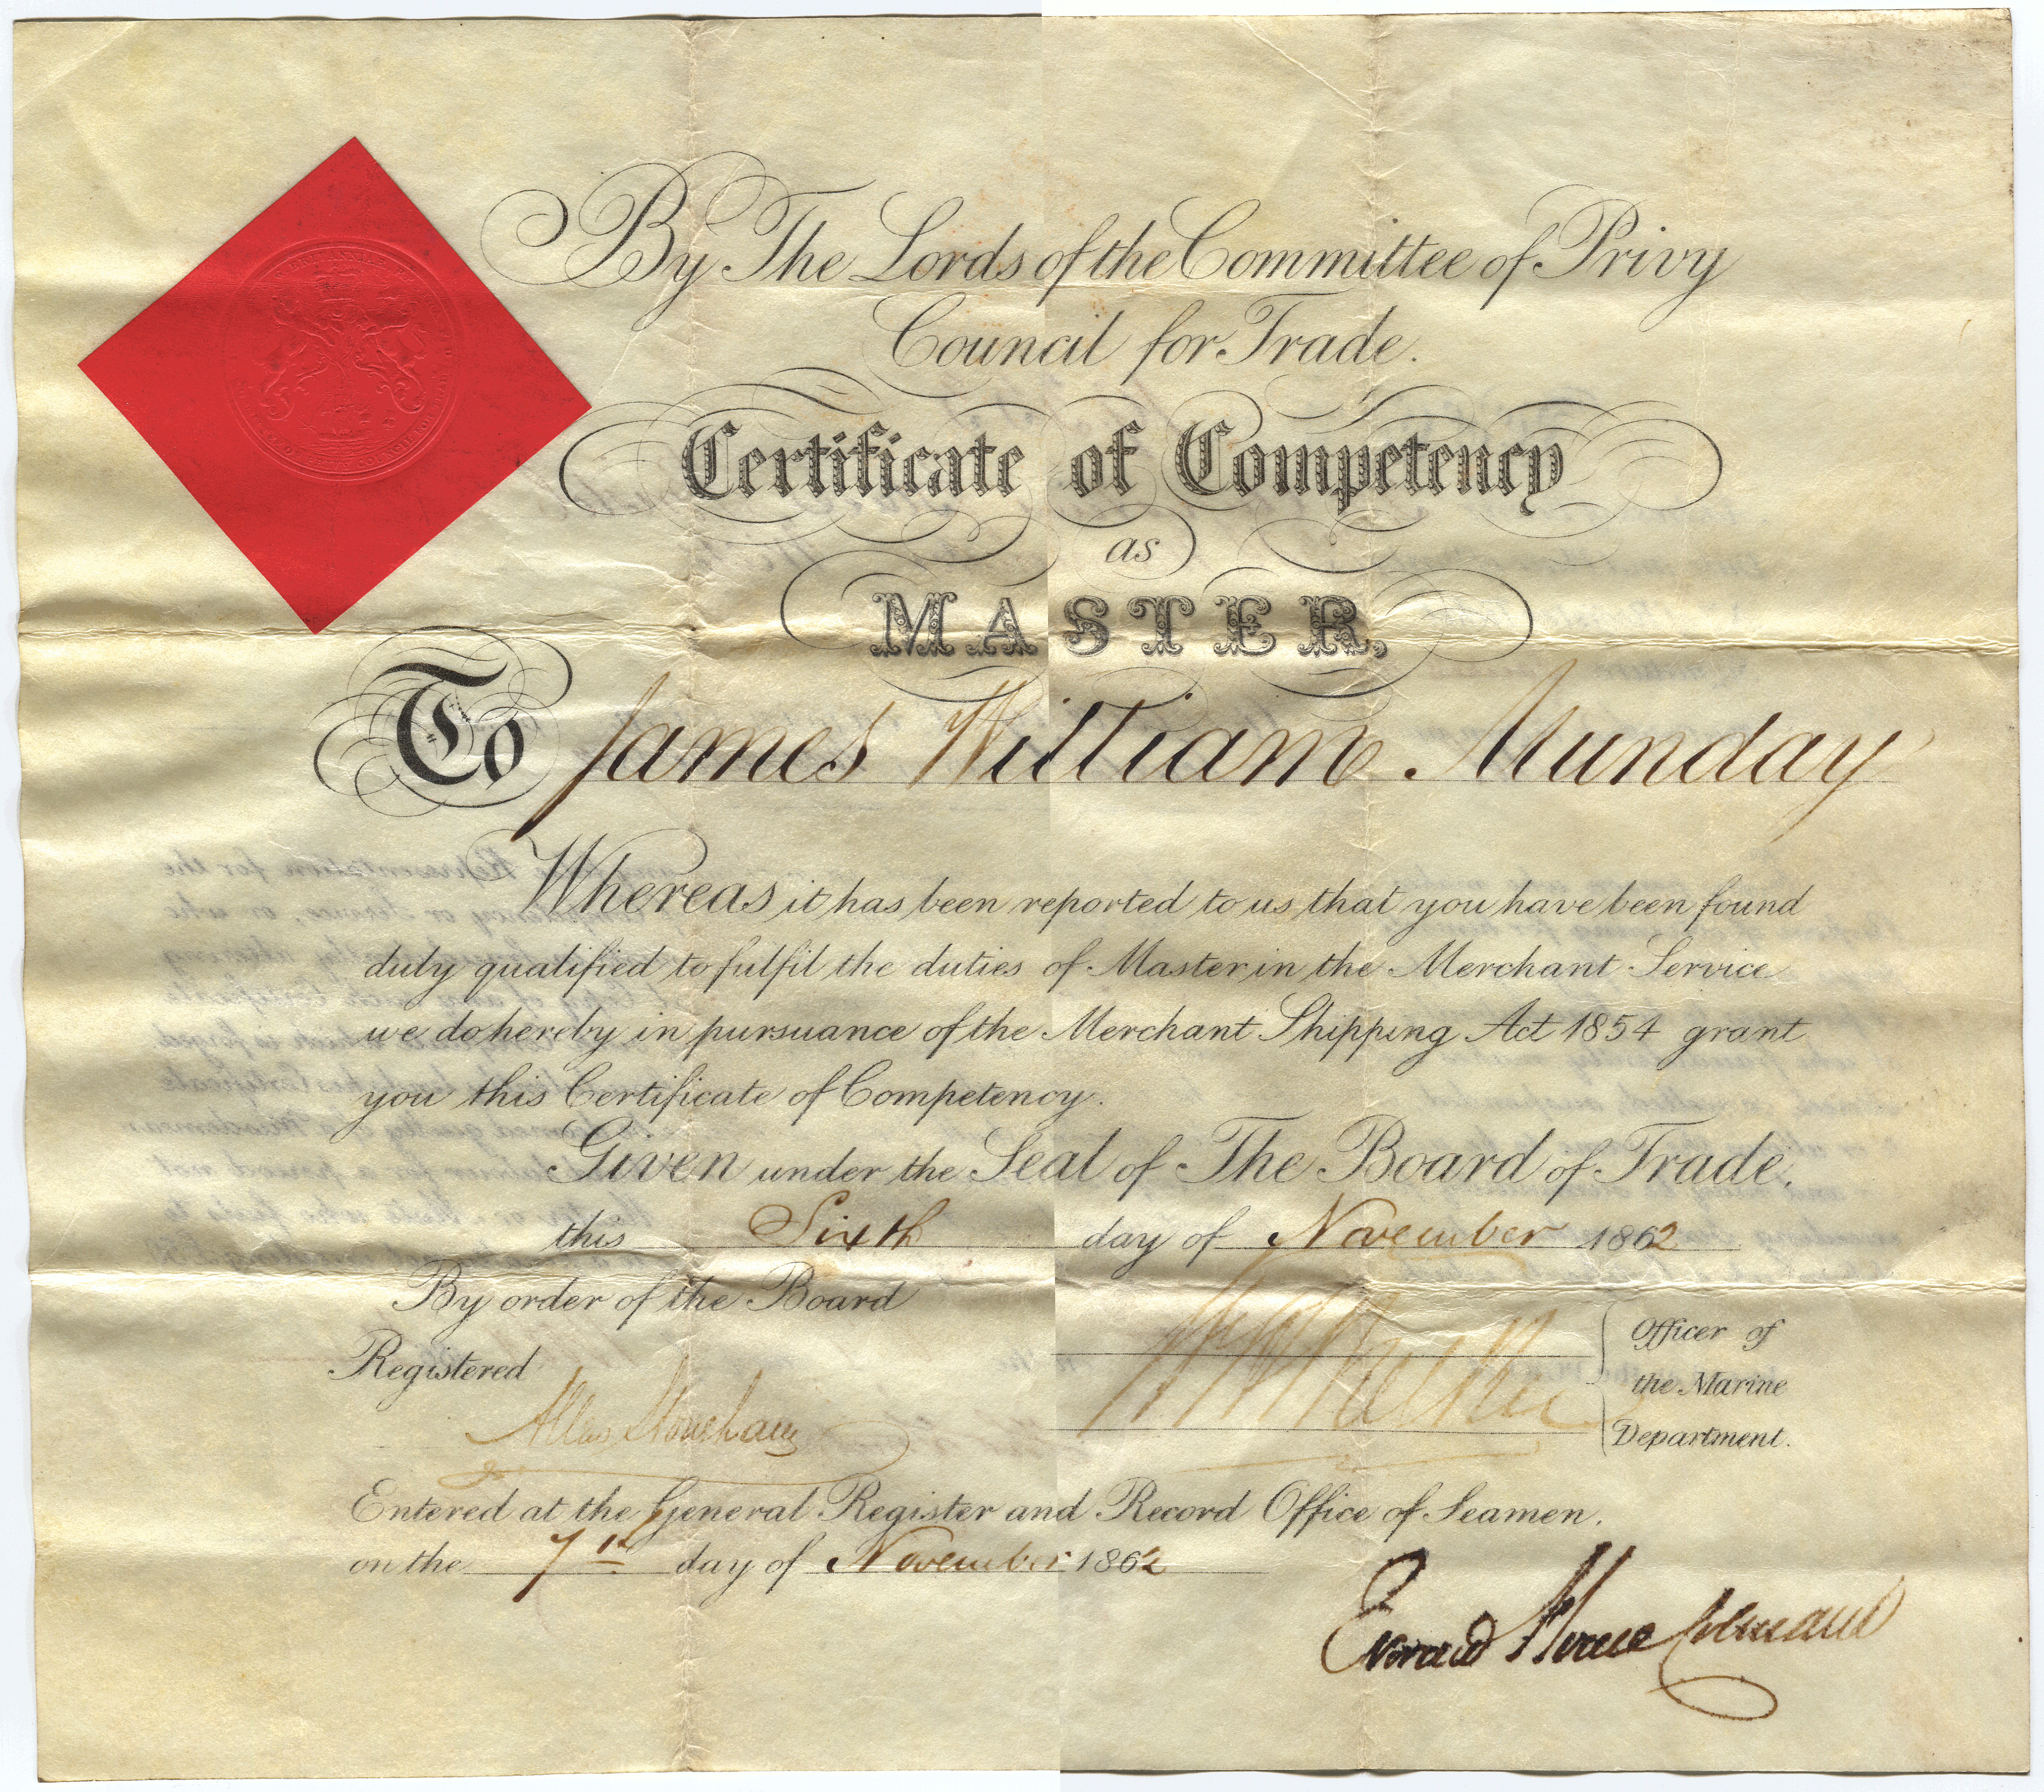 By The Lords of the Committee of Privy
Council for Trade.
Certificate of Competency
as
MASTER,
To James William Munday
Whereas it has been reported to us that you have been found
duly qualified to fulfil the duties of Master in the Merchant Service
we do hereby in pursuance of the Merchant Shipping Act 1854 grant
you this Certificate of Competency.
Given under the Seal of The Board of Trade.
this Sixth day of November 1862
By order of the Board
Officer of
the Marine
Department.
Registered
Entered at the General Register and Record Office of Seamen.
on the 7th day of November 1862